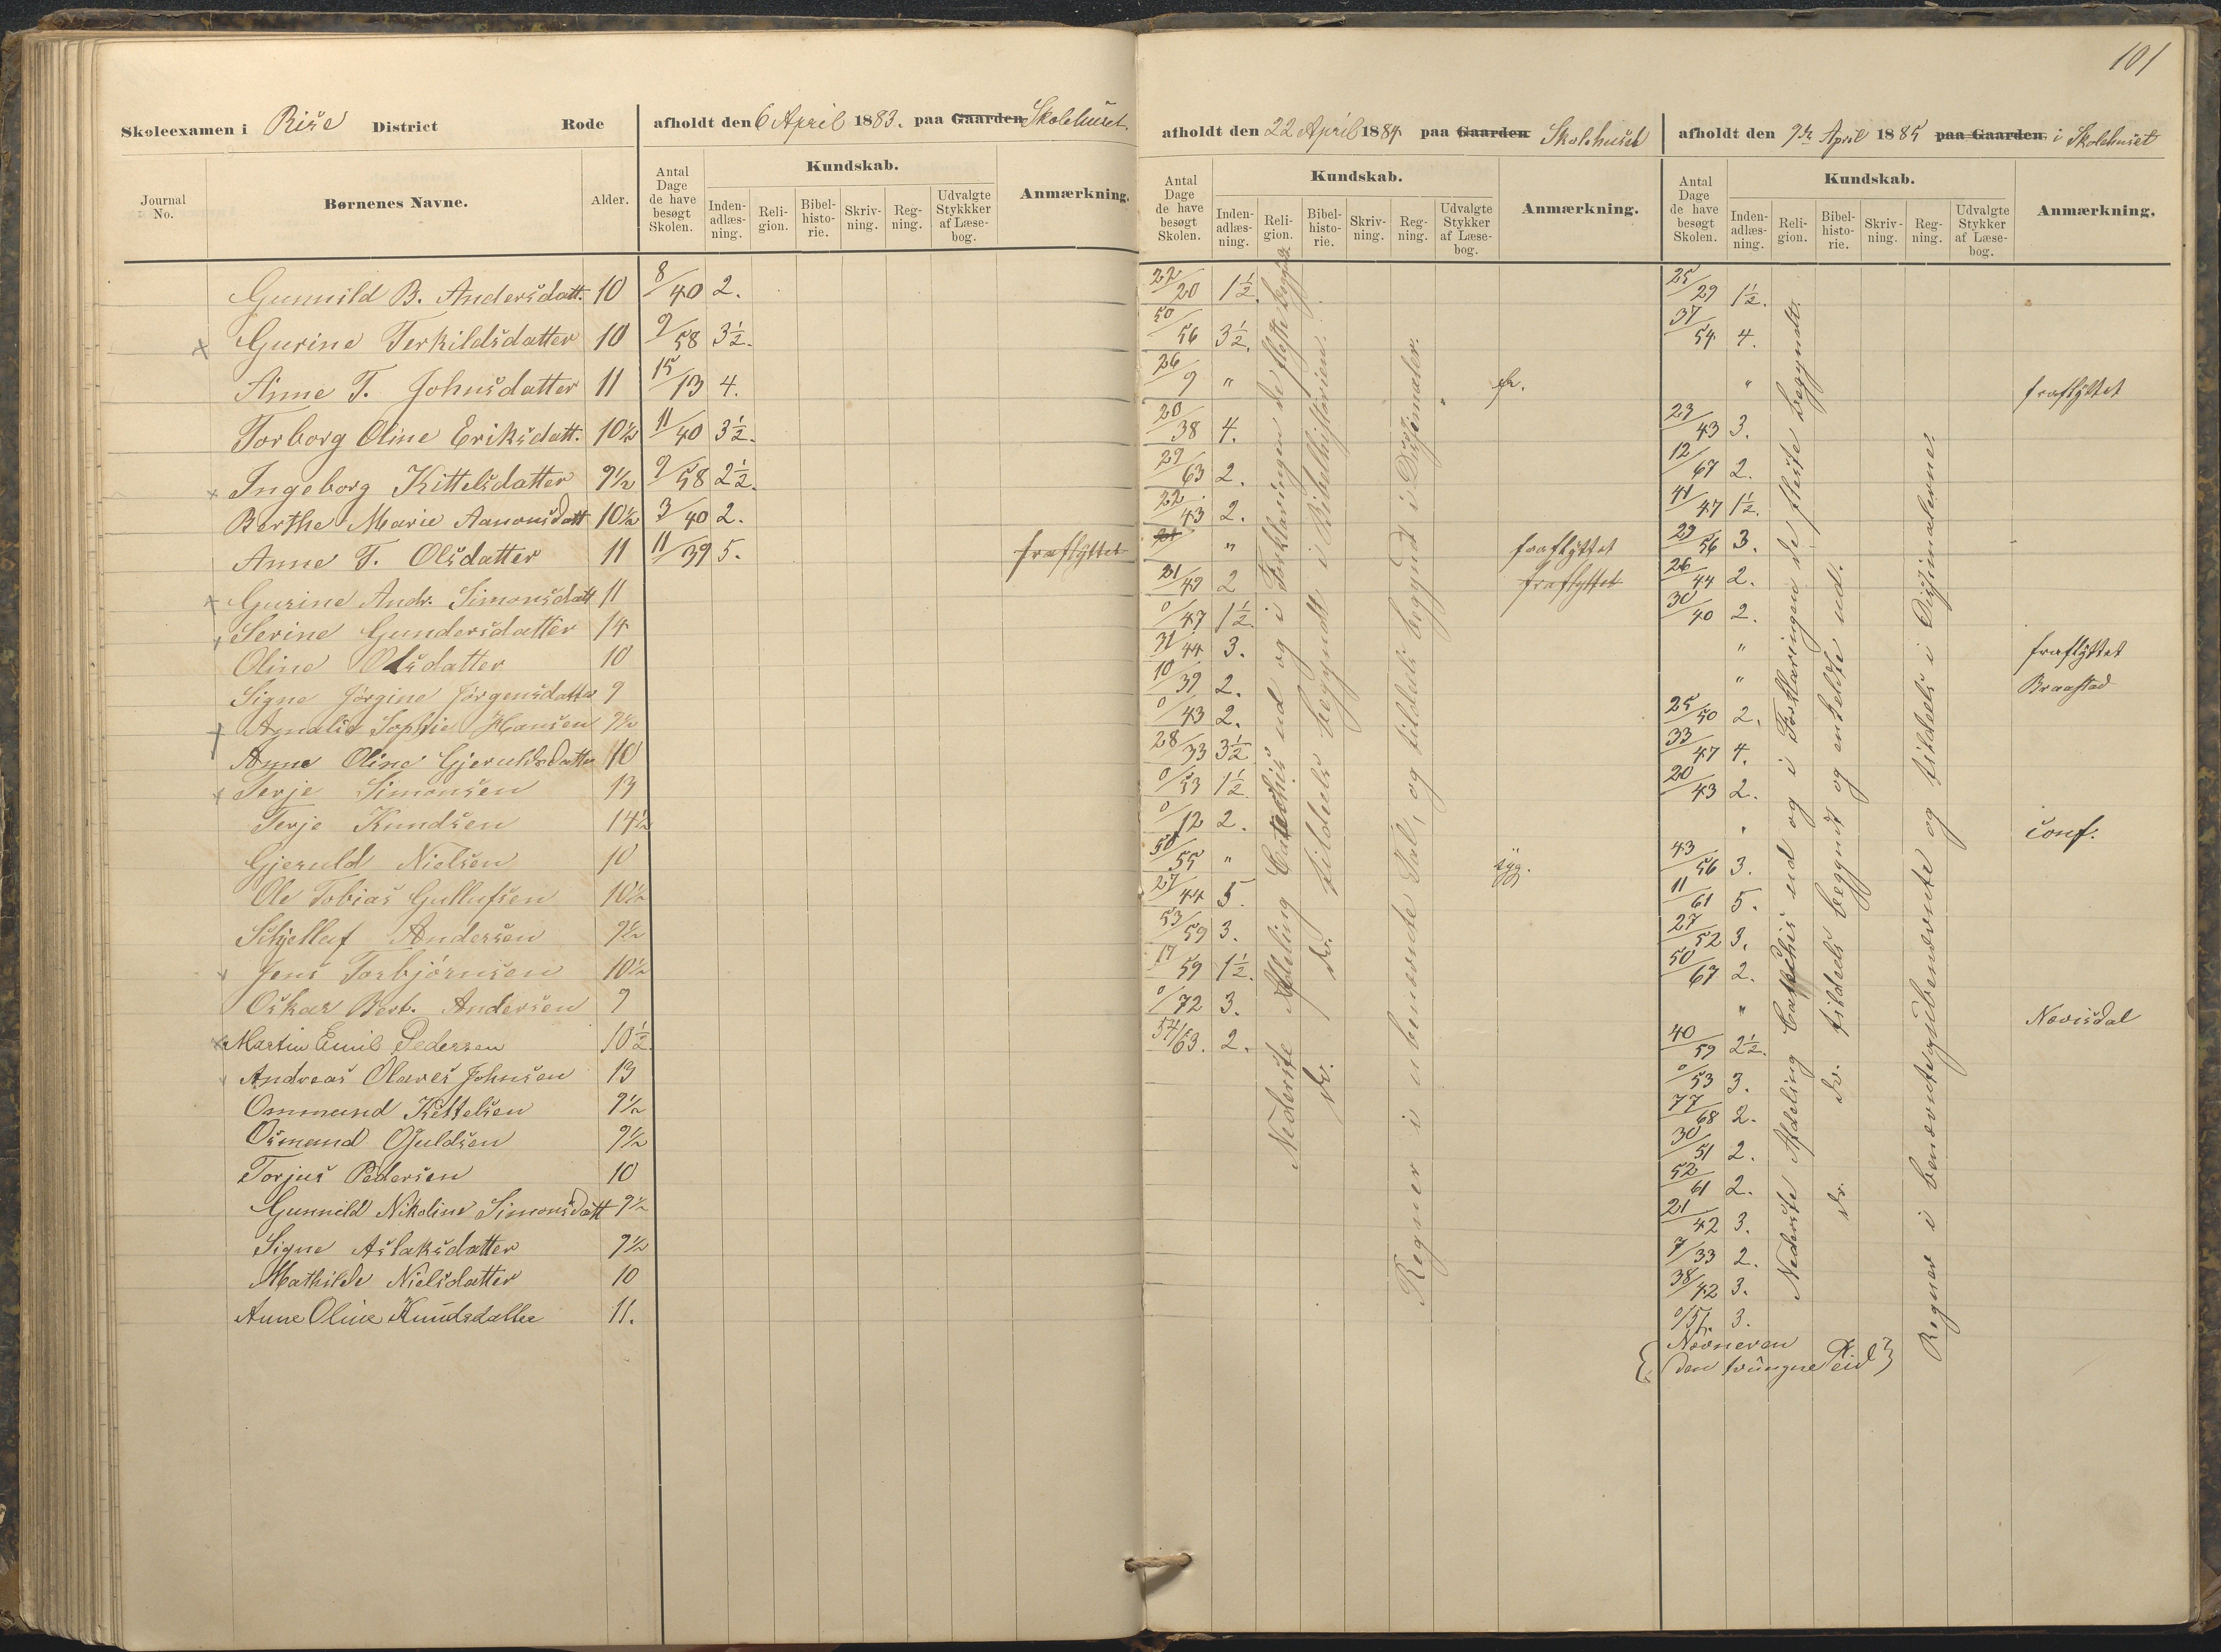 101
Skoleexamen i Rise District Rode
afholdt den 6 April 1883. paa Gaarden Skolehuset.
afholdt den 22 April 1884 paa Gaarden Skolehuset
afholdt den 9de April 1885 paa Gaarden i Skolehuset
Journal No. Børnenes Navne. Alder. Antal Dage de have besøgt Skolen. Kundskab. Inden-adlæs-ning. Reli-gion. Bibel-histo-rie. Skriv-ning. Reg-ning. Udvalgte Stykkker af Læse-bog. Anmærkning.
Antal Dage de have besøgt Skolen. Kundskab. Inden-adlæs-ning. Reli-gion. Bibel-histo-rie. Skriv-ning. Reg-ning. Udvalgte Stykker af Læse-bog. Anmærkning.
Antal Dage de have besøgt Skolen. Kundskab. Inden-adlæs-ning. Reli-gion. Bibel-histo-rie. Skriv-ning. Reg-ning. Udvalgte Stykker af Læse-bog. Anmærkning.
Gunnild B. Andersdatt. 10 8/40 2. 22/20 1½. 25/29 1½.
x Gurine Terkildsdatter 10 9/58 3½. 50/56 3½. 37/54 4.
Anne T. Johnsdatter 11 15/13 4. 26/9 " " fraflyttet
Torborg Oline Eriksdatt. 10½ 11/40 3½. 20/38 4. 23/43 3.
x Ingeborg Kittelsdatter 9½ 9/58 2½. 29/63 2. 12/67 2.
Berthe Marie Aanonsdatt 10½ 3/40 2. 22/43 2. 41/47 1½.
Anne T. Olsdatter 11 11/39 5. fraflyttet " fraflyttet 29/56 3.
x Gurine Andr. Simonsdatt 11 31/42 2 fraflyttet 26/44 2.
Serine Gundersdatter 14 0/47 1½. 30/40 2.
Oline Olsdatter 10 31/44 3. " fraflyttet
Signe Jørgine Jørgensdatter 9 10/39 2. " Braastad
x Agnalie Sophie Hansen 9½ 0/43 2. 25/50 2.
Anne Oline Gjeruldsdatter 10 28/33 3½ 33/47 4.
x Terje Simonsen 13 0/53 1½. 20/43 2.
Terje Knudsen 14½ 0/12 2. " conf.
Gjeruld Nielsen 10 50/55 " syg. 43/56 3.
Ole Tobias Gullufsen 10½ 27/44 5. 11/61 5.
Schjellef Andersen 9½ 53/59 3. 27/52 3.
Jens Torbjørnsen 10½ 17/59 1½. 50/67 2.
Oskar Bert. Andersen 9 0/72 3. " Nævisdal
x Martin Emil Pedersen 10½. 54/63. 2. 40/59 2½.
Andreas Olaves Johnsen 13 0/53 3.
Ommund Kittelsen 9½ 77/68 2.
Osmund Guldsen 9½ 30/51 2.
Torjus Pedersen 10 52/61 2.
Gunnild Nikoline Simonsdatt 9½ 21/42 3.
Signe Aslaksdatter 9½ 7/33 2.
Mathilde Nielsdatter 10 38/42 3.
Anne Oline Knudsdatter 11. 0/57. 3.
Nederste Afdeling Catechis ud og i Forklaringen de fleste begyndt
do. do. tildeels begyndt i Bibelhistorien.
Regner i ubenævnte Tal, og tildeels begyndt i Decimaler.
Nederste Afdeling Catechis ud og i Forklaringen de fleste begyndt.
do. do. tildeels begyndt og enkeldte ud.
Regner i benævnte og ubenævnte og tildeels i Decimalerne.
den tvungne Tid